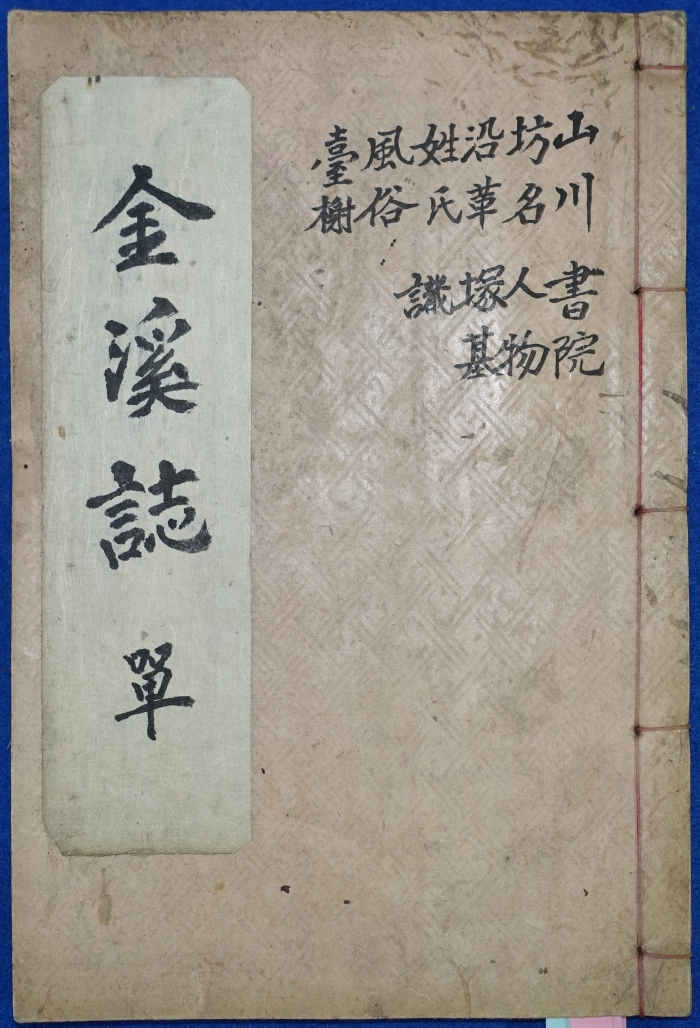 山川
坊名
沿革
姓氏
風俗
臺榭
書院
人物
塚基
金溪誌 單